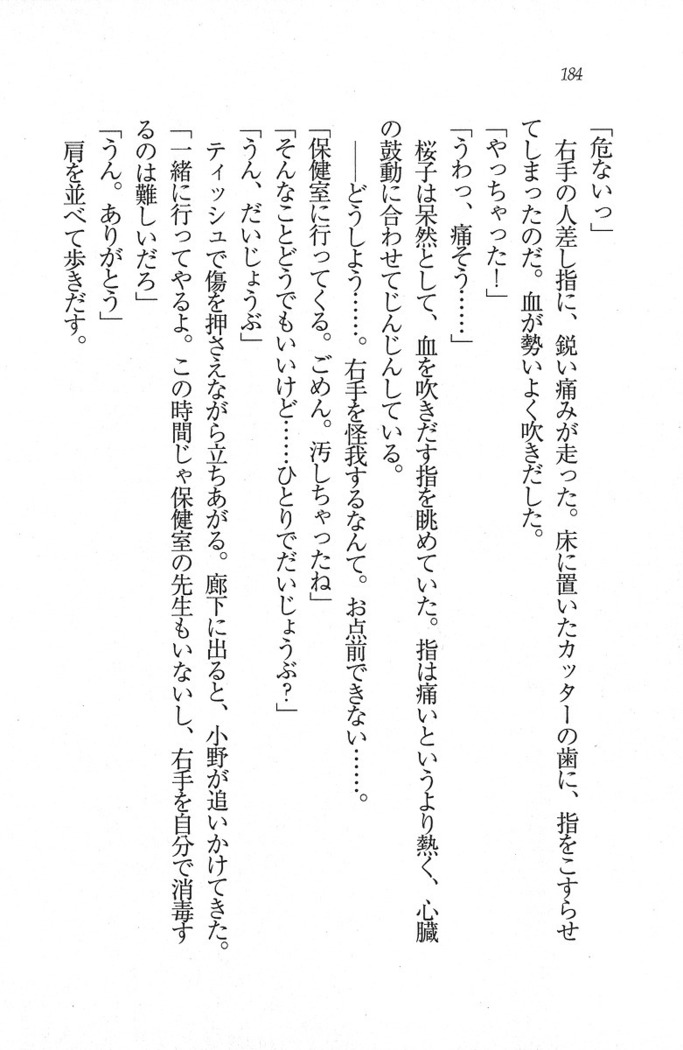 184
「危ないっ」
右手の人差し指に、鋭い痛みが走った。床に置いたカッターの歯に、指をこすらせ
てしまったのだ。血が勢いよく吹きだした。
「やっちゃった！」
「うわっ、痛そう……」
桜子は呆然として、血を吹きだす指を眺めていた。指は痛いというより熱く、心臓
の鼓動に合わせてじんじんしている。
――どうしよう……。右手を怪我するなんて。お点前できない……。
「保健室に行ってくる。ごめん。汚しちゃったね」
「そんなことどうでもいいけど……ひとりでだいじょうぶ？」
「うん、だいじょうぶ」
ティッシュで傷を押さえながら立ちあがる。廊下に出ると、小野が追いかけてきた。
「一緒に行ってやるよ。この時間じゃ保健室の先生もいないし、右手を自分で消毒す
るのは難しいだろ」
「うん。ありがとう」
肩を並べて歩きだす。